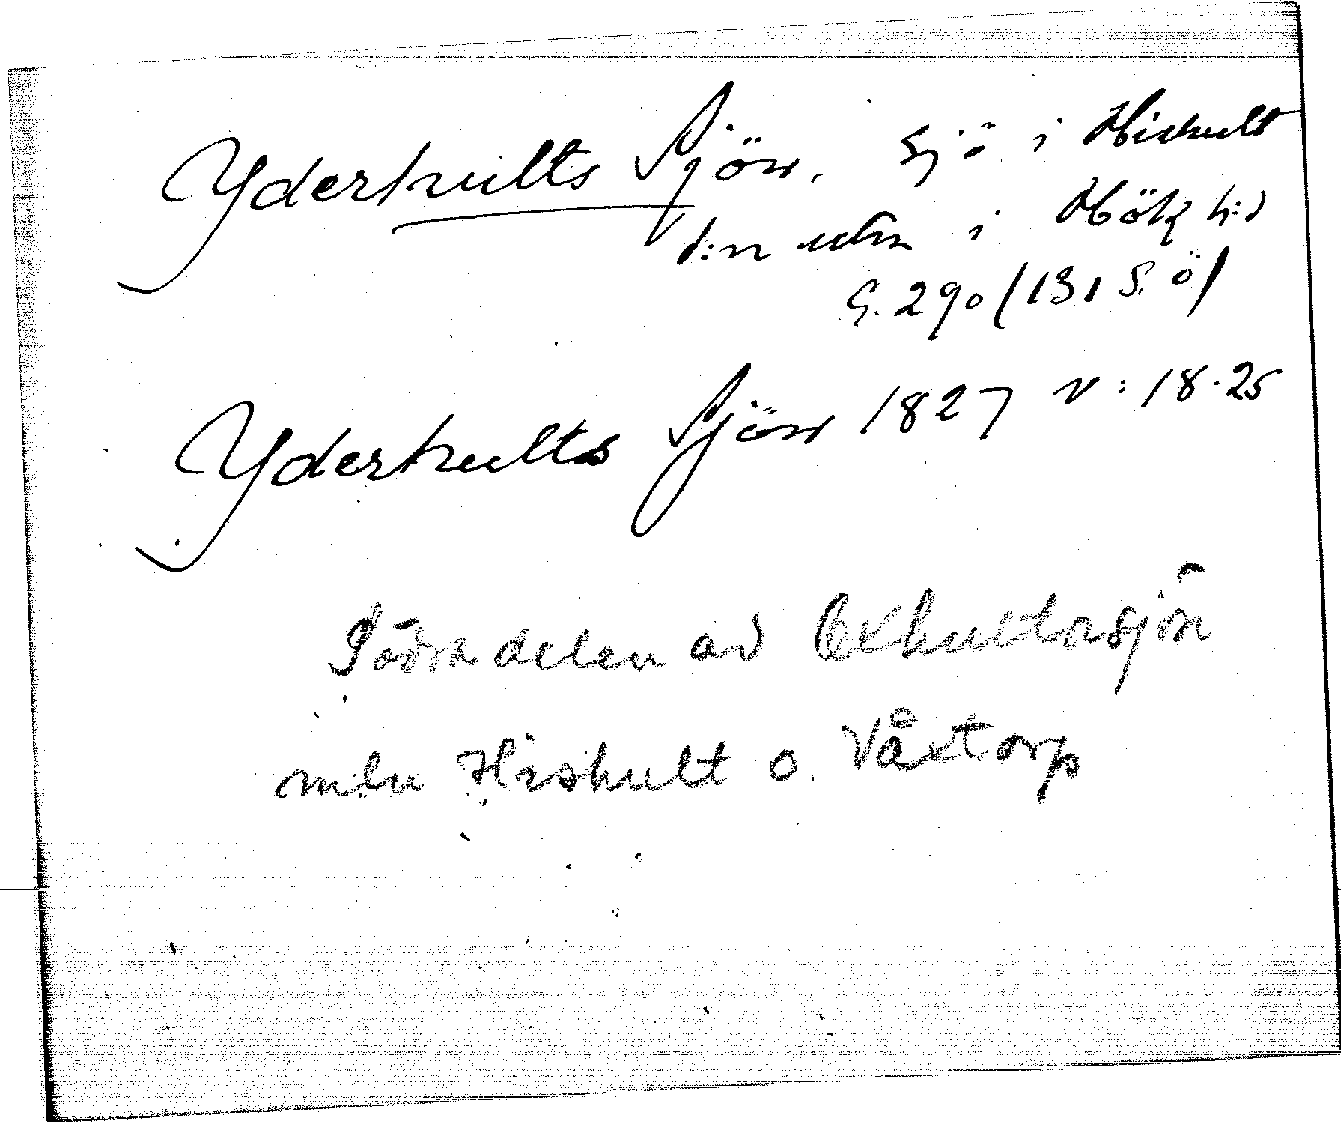 Yderhults Sjön, Sjö i Hishult
s:n utm i Hök h:d
G. 290 (131 S. ö)
Yderhults Sjön 1827 V: 18.25
Södra delen av Oxhultasjön
mln Hishult o. Våxtorp